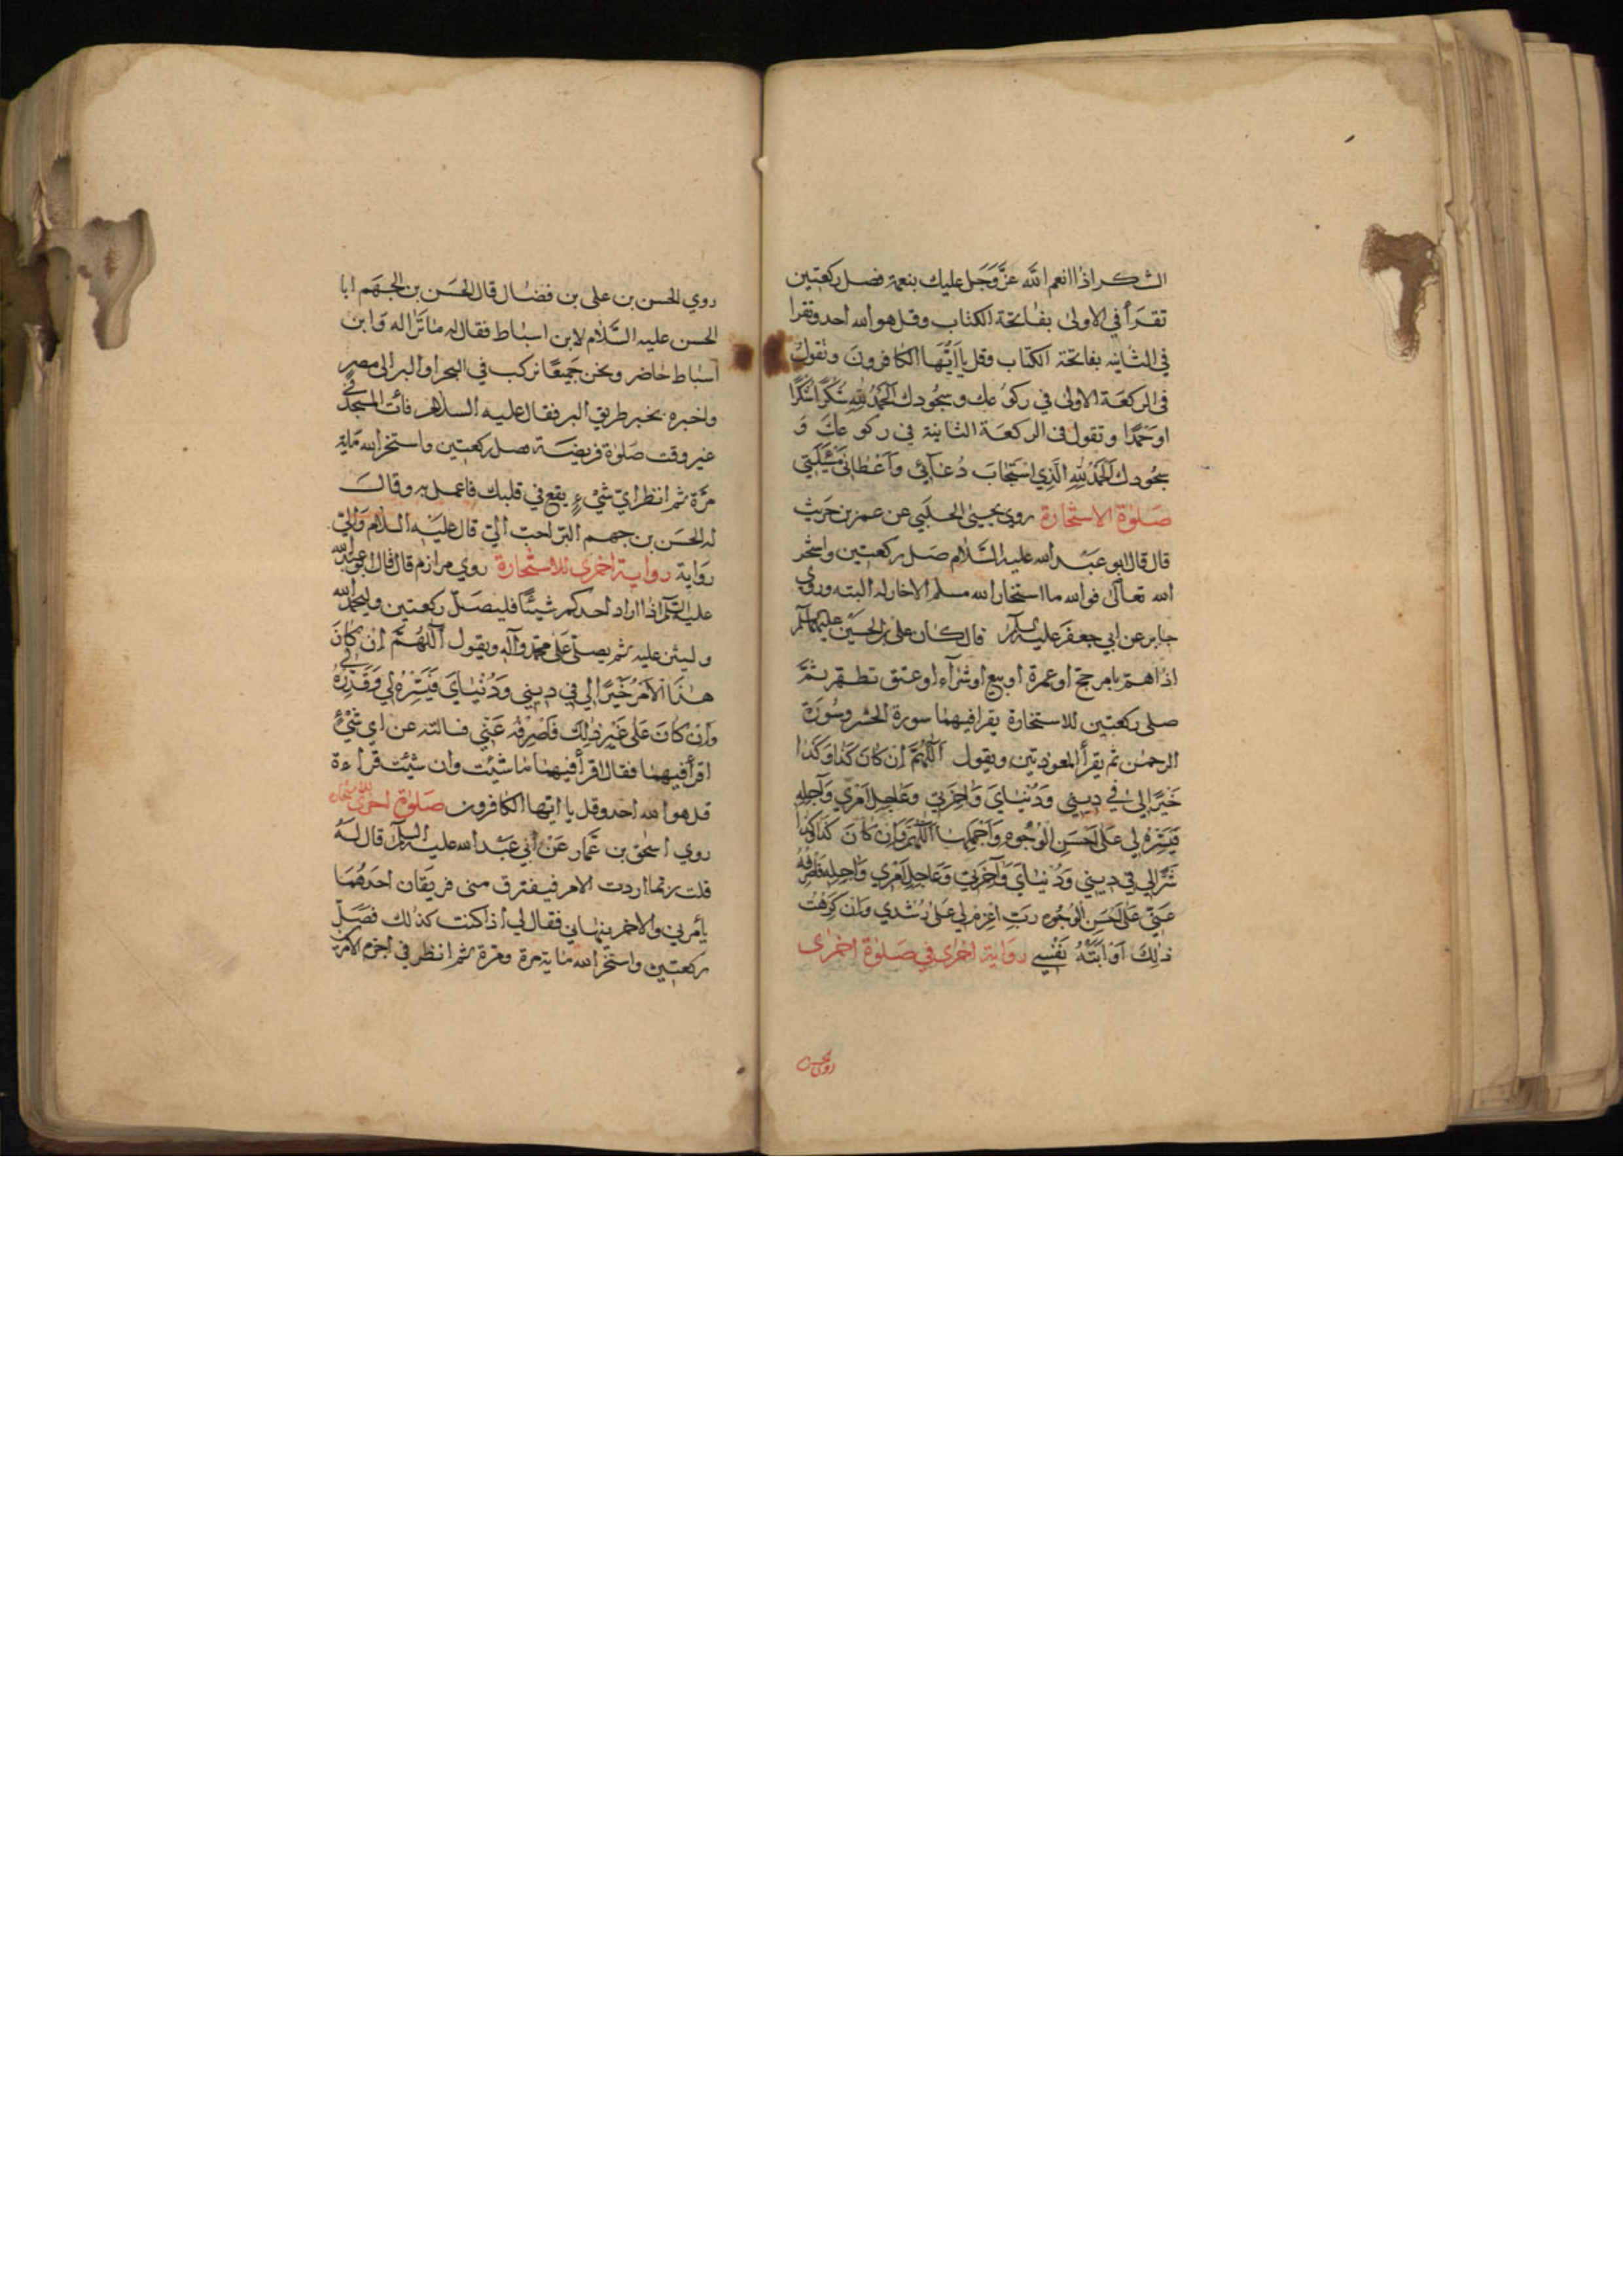 الشكر اذا انعم الله عَزَّ وَجَل عليك بنعمة فصل ركعتين
تقرأ في الاولى بفاتحة الكتاب وقل هو الله احد وتقرا
في الثانيه بفاتحة الكتاب وقل يا اَيُّهَا الكافرونَ وتقول
فى الركعة الاولى في ركوعك وسجودك اَلحَمدُ لِلّهِ شُكْرًا شُكْرًا
وَحَمْدًا وتقول فى الركعة الثانية في ركوعك وَ
سجودك اَلحَمدُ لِلّهِ الَّذِي اسْتَجابَ دُعَآئي وَاَعْطاني مَسْئَلَتي
صَلوٰة الاستخارة روى يحيى الحلبي عن عمر بن حريث
قال قال ابو عبد الله عليه السَّلام صَل ركعتين واستخر
الله تعالى فوالله ما استخار الله مسلم الا خار له البته وروى
جابر عن ابي جعفر عليه السلم قال كان على بن الحسين عليهما السلم
اذا هم بامر حج او عمرة او بيع او شراء او عتق تطهر ثمَّ
صلى ركعتين للاستخارة يقرا فيهما سورة الحشر وسُورة
الرحمن ثم يقرأ المعوذتين ويقول اَللّهُمَّ اِنْ كانَ كَذا وَكَذا
خَيْرًا لي في ديني وَدُنْيايَ وَاخِرَتي وَعَاجِلِ اَمْري وَآجِلِهِ
فَيَسِّرْهُ لي عَلى اَحْسَنِ الْوُجُوهِ وَاَجْمَلِها اَللّهُمَّ وَاِنْ كانَ كَذا وَكَذا
شَرًّا لي في ديني وَدُنْيايَ وَآخِرَتي وَعَاجِلِ اَمْري وَاجِلِهِ فَاصْرِفْهُ
عَنّي عَلى اَحْسَنِ الْوُجُوهِ رَبِّ اعْزِمْ لي عَلى رُشْدي وَاِنْ كَرِهْتُ
ذلِكَ اَوْ اَبَتْهُ نَفْسي رواية اخرى في صَلوٰة اخرى
روى الحسن
روي الحسن بن على بن فضال قال الحسَن بن الجهَم ابا
الحسن عليه السَّلام لابن اسباط فقال له ما ترا له وَابن
اسباط حاضر ونحن جَميعًا نركب في البحر او البر الى مصر
واخبره بخبر طريق البر فقال عليه السلام فائت المسجد في
غير وقت صَلوٰة فريضة فصل ركعتين واستخر الله مايه
مرَّة ثم انظر اي شيْء يقع في قلبك فاعمل به وقال
له الحَسن بن جهم البر احب الي قال عليه السلام وَالي
رواية رواية اخرى للاستخارة روي مرازم قال قال ابو عبد الله
عليه السلم اذا اراد احدكم شيئًا فليصَلّ ركعتين وليحمد الله
وليثن عليه ثم يصلي عَلى محمد وآله ويقول اَللّهُمَّ اِنْ كانَ
هذَا الْاَمْرُ خَيْرًا لي في ديني وَدُنْيايَ فَيَسِّرْهُ لي وَقَدِّرْهُ لي
وَاِنْ كانَ عَلى غَيْرِ ذلِكَ فَاصْرِفْهُ عَنّي فسالته عن اي شيْءٍ
اقرأ فيهما فقال اقرأ فيهما ما شئت وان شئت قراءة
قل هو الله احد وقل يا ايها الكافرون صَلوٰة اخرى للاستخارة
روي اسحق بن عَمّار عَنْ أبي عَبْد الله عليه السلم قال لهُ
قلت ربما اردت الامر فيفترق منى فريقان احدهُمَا
يأمرني والاخر ينهاني فقال لي اذا كنت كذلك فصَلِّ
ركعتين واستخر الله ماية مرة ومرة ثم انظر في احزم الامرين